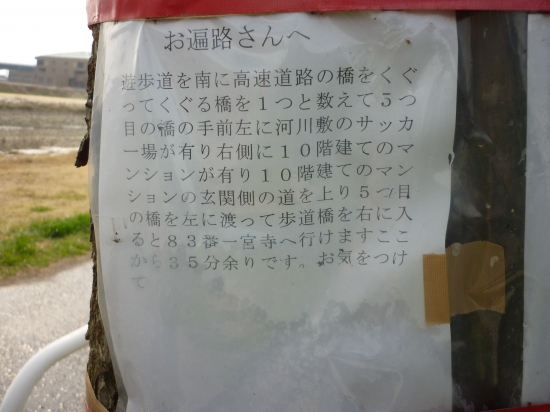 お遍路さんへ
遊歩道を南に高速道路の橋をくぐ
ってくぐる橋を１つと数えて５つ
目の橋の手前左に河川敷のサッカ
ー場が有り右側に１０階建てのマ
ンションが有り１０階建てのマン
ションの玄関側の道を上り５つ目
の橋を左に渡って歩道橋を右に入
ると８３番一宮寺へ行けますここ
から３５分余りです。お気をつけ
て